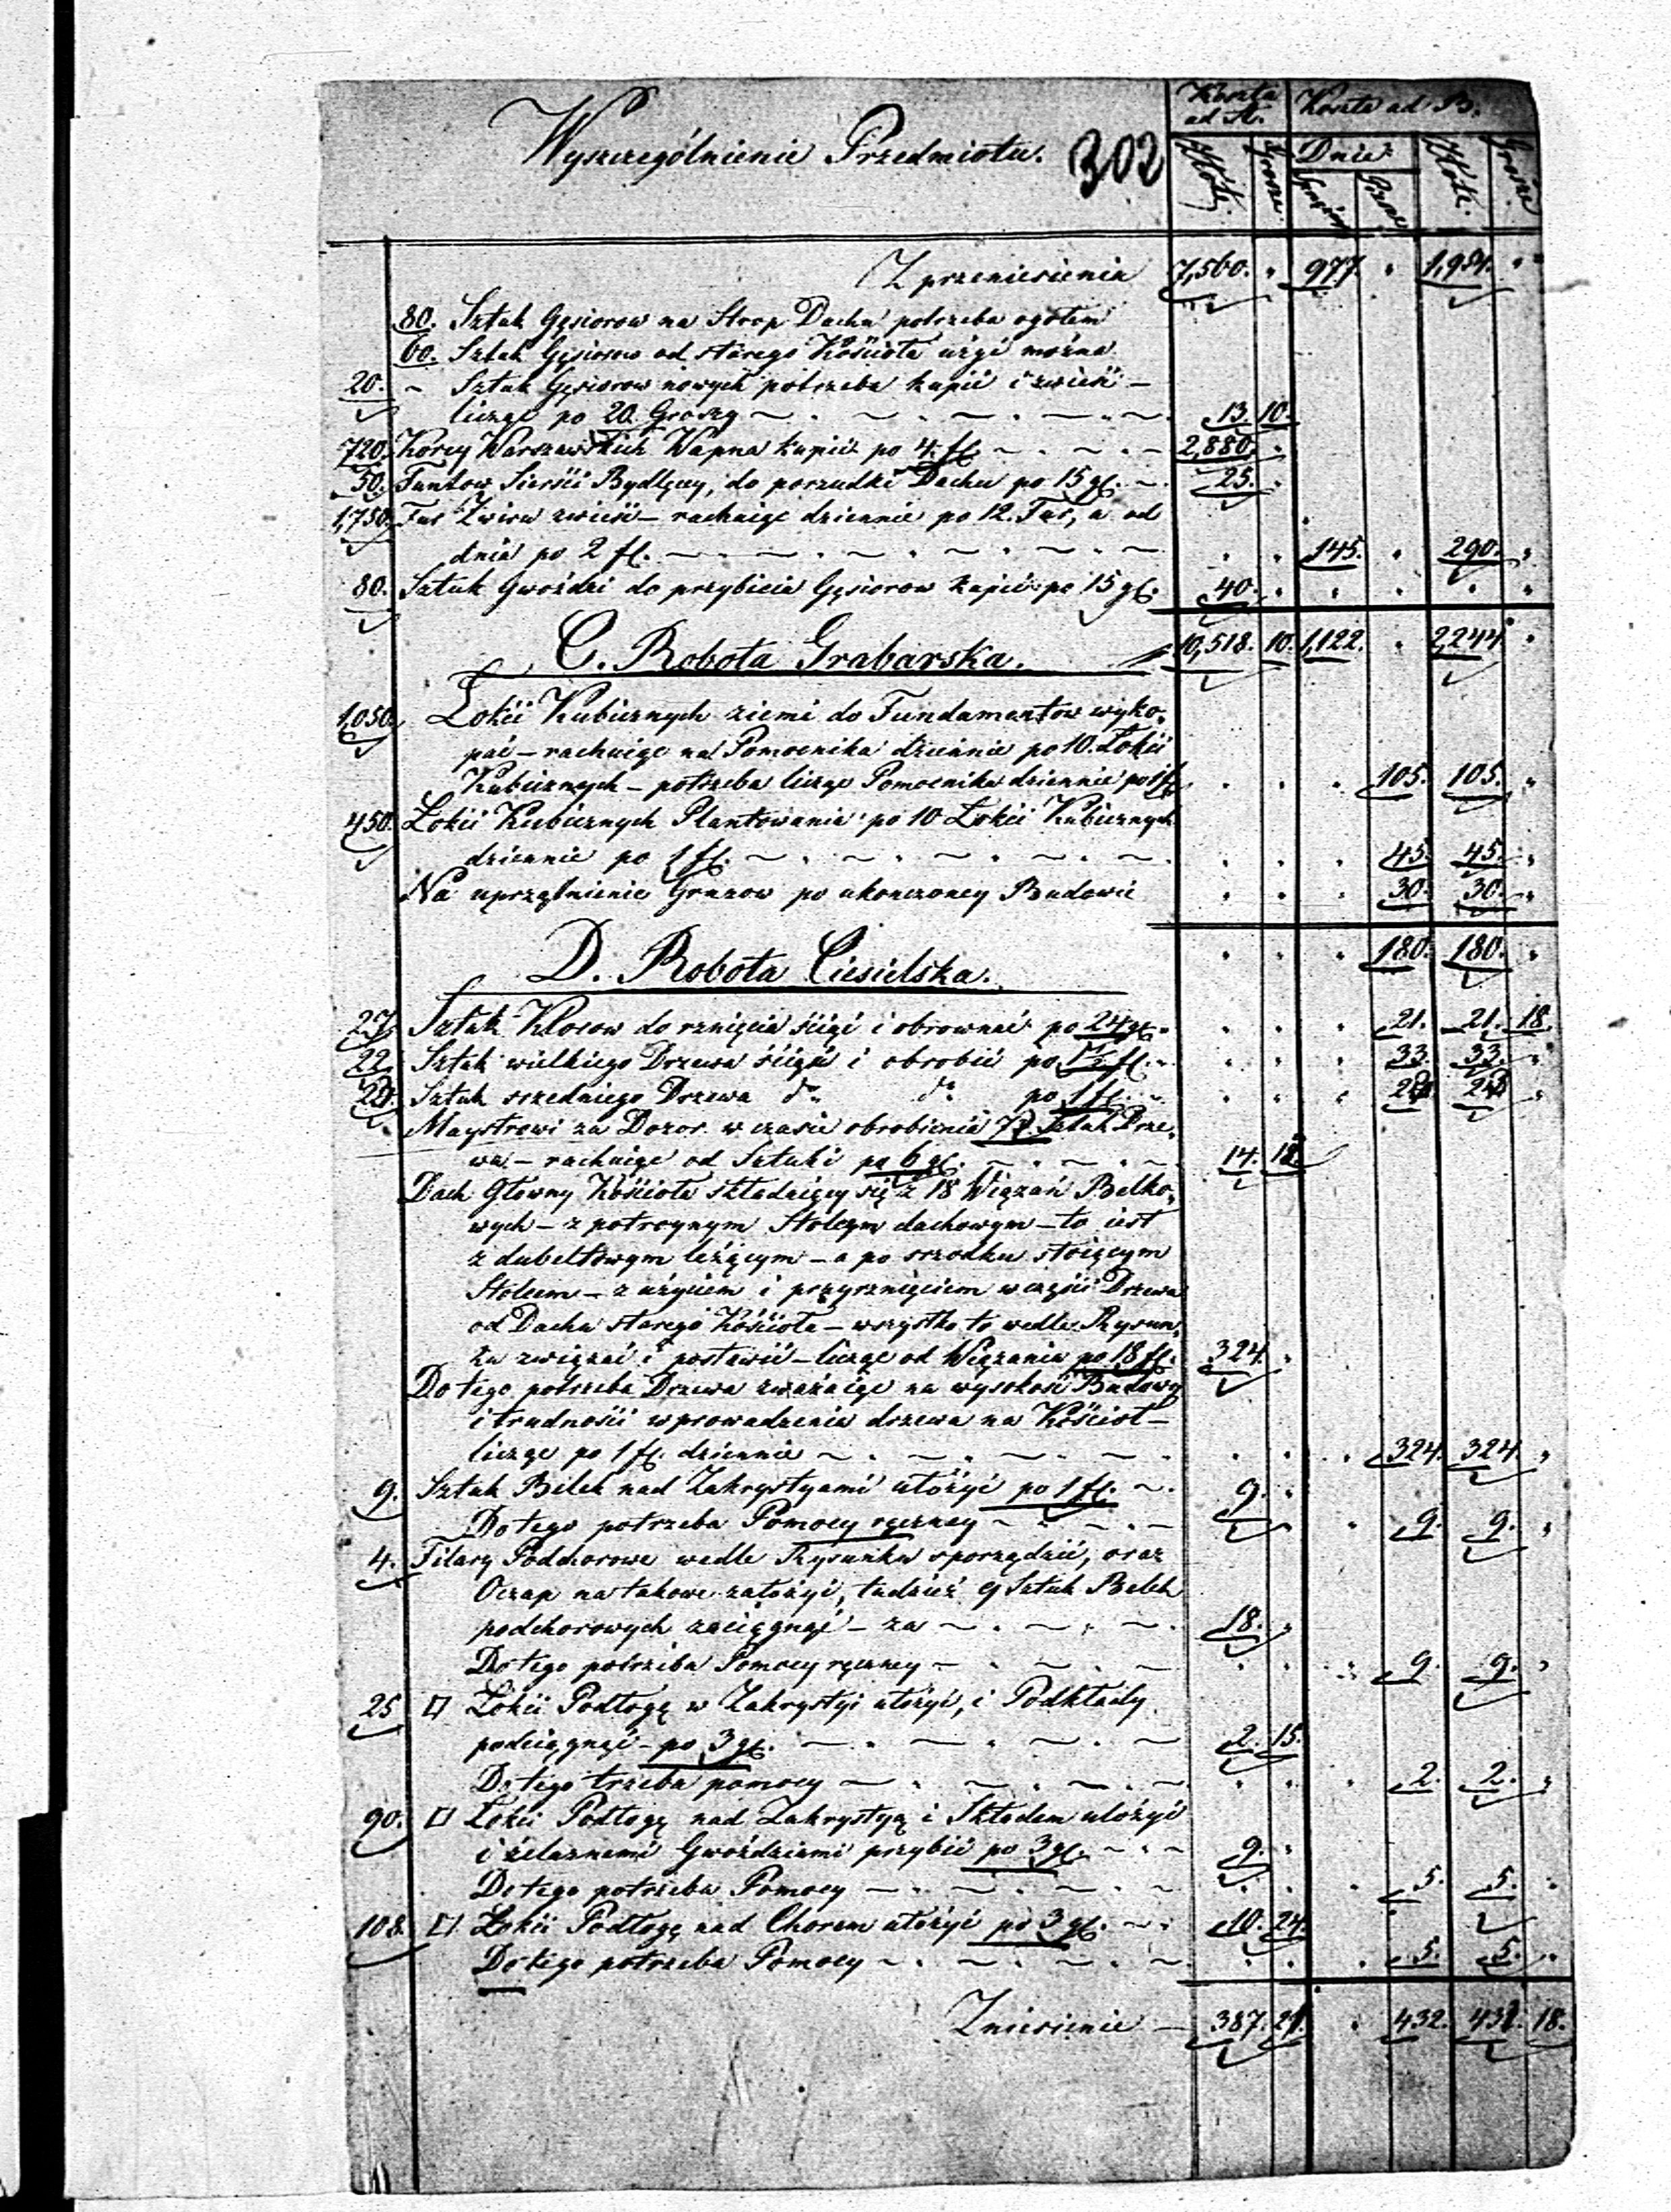 Wyszczególnienie Przedmiotu.
302
Koszta ad A.
Koszta ad B.
Dnie
Złote. Grosze Piesze Złote. Grosze
Z przeniesienia 7,560. " 977 " 1,954. "
80. Sztuk Gęsiorow na Strop Dachu potrzeba ogołem
60. Sztuk Gęsiorow od starego Kościoła użyć można
20. ~ Sztuk Gęsiorow nowych potrzeba kupić i zwieść –
licząc po 20 Groszy 13. 10.
720. Korcy Warszawskich Wapna kupić po 4. fl. 2,880. "
50. Funtow Sierści Bydlęcy, do porzudki Dachu po 15 gl. 25. "
1,750. Fur Zwiru zwieść – rachuiąc dziennie po 12. Fur, a od
dnia po 2 fl. " " 145. " 290. "
80. Sztuk Gwoździ do przybicia Gęsiorow kupić po 15 gl. 40. " " " " "
C. Robota Grabarska. 10,518. 10. 1,122. " 2,244 "
1,050. Łokci Kubicznych ziemi do Fundamentow wyko-
pać – rachuiąc na Pomocnika dziennie po 10. Łokci
Kubicznych – potrzeba licząc Pomocnika dziennie po 1 fl. " " " 105. 105. "
450. Łokci Kubicznych Plantowania po 10 Łokci Kubicznych
dziennie po 1 fl. " " " 45. 45. "
Na uprzątnienie Gruzow po ukonczoney Budowie " " " 30. 30. "
D. Robota Ciesielska. " " " 180. 180. "
27. Sztuk Klocow do rznięcia ściąć i obrownać po 24 gl. " " " 21. 21. 18.
22. Sztuk wielkiego Drzewa ściąć i obrobić po 1½ fl. " " " 33. 33. "
Sztuk srzedniego Drzewa do do po 1 fl. " " " 24 24 "
Maystrowi za Dozor w czasie obrobienia Sztuk Drze-
wa – rachuiąc od Sztuki po 6 gl. 14.
Dach Głowny Kościoła składaiący się z 18 Wiązań Belko-
wych – z potroynym Stolcem dachowym – to iest
z dubeltowym leżącym – a po srzodku stoiącym
Stolcem – z użyciem i przyrznięciem w części Drzewa
od Dachu starego Kościoła – wszystko to wedle Rysun-
ku związać i postawić – licząc od Wiązania po 18 fl. 324. "
Do tego potrzeba Drzewa zważaiąc na wysokość Budowy
i trudności wprowadzenia drzewa na Kościoł –
licząc po 1 fl. dziennie " " " 324. 324. "
9. Sztuk Belek nad Zakrystyami ułożyć po 1 fl. 9. "
Do tego potrzeba Pomocy ręczney " 9. 9. "
4. Filary Podchorowe wedle Rysunku sporządzić, oraz
Oczap na takowe założyć, tudzież 9 Sztuk Belek
podchorowych zaciągnąć – za 18. "
Do tego potrzeba Pomocy ręczney " " " 9. 9. "
25 □ Łokci Podłogę w Zakrystyi ułożyć, i Podkłady
podciągnąć – po 3 gl. 2. 15.
Do tego trzeba pomocy " " " 2. 2. "
90. □ Łokci Podłogę nad Zakrystyą i Składem ułożyć
i żelaznemi Gwoździami przybić po 3 gl. 9. "
Do tego potrzeba Pomocy " " " 5. 5. "
108. □ Łokci Podłogę nad Chorem ułożyć po 3 gl. 10. 24.
Do tego potrzeba Pomocy " " " 5. 5. "
Zniesienie – 387. " " 432. 432. 18.